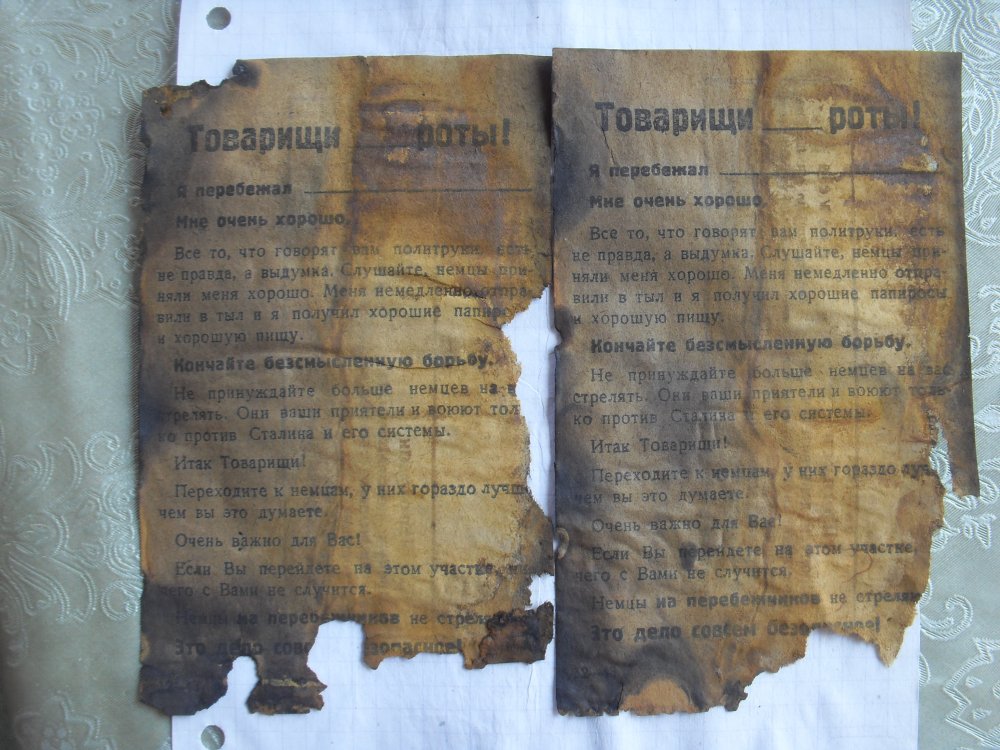 Товарищи ___ роты!
Я перебежал
Мне очень хорошо.
Все то, что говорят вам политруки, есть
не правда, а выдумка. Слушайте, немцы при-
няли меня хорошо. Меня немедленно отпра-
вили в тыл и я получил хорошие папиросы
и хорошую пищу.
Кончайте безсмысленную борьбу.
Не принуждайте больше немцев на в
стрелять. Они ваши приятели и воюют тол
ко против Сталина и его системы.
Итак Товарищи!
Переходите к немцам, у них гораздо лучш
чем вы это думаете.
Очень важно для Вас!
Если Вы перейдете на этом участке, ни
чего с Вами не случится.
Немцы на перебежчиков не стреля
Это дело совсем безопасное!
Товарищи ___ роты!
Я перебежал
Мне очень хорошо
Все то, что говорят вам политруки, есть
не правда, а выдумка. Слушайте, немцы при-
няли меня хорошо. Меня немедленно отпра-
вили в тыл и я получил хорошие папиросы
и хорошую пищу.
Кончайте безсмысленную борьбу.
Не принуждайте больше немцев на вас
стрелять. Они ваши приятели и воюют толь-
ко против Сталина и его системы.
Итак Товарищи!
Переходите к немцам, у них гораздо лучш
чем вы это думаете.
Очень важно для Вас!
Если Вы перейдете на этом участке,
чего с Вами не случится.
Немцы на перебежчиков не стреляю
Это дело совсем безопасное!